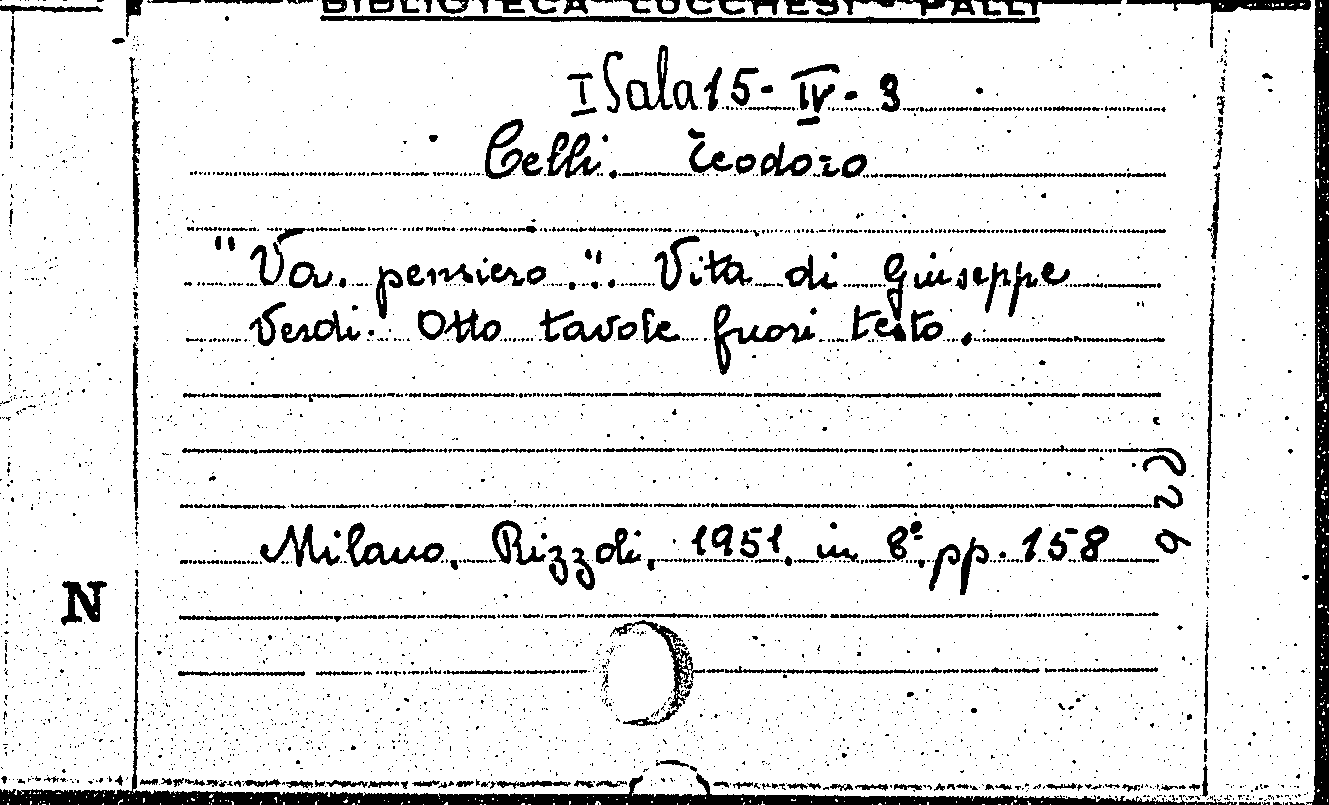 BIBLIOTECA LUCCHESI - PALLI
I Sala 15 - IV - 3
Celli. Teodoro
"Va. pensiero.". Vita di Giuseppe
Verdi. Otto tavole fuori testo.
Milano, Rizzoli, 1951, in 8º, pp. 158
N